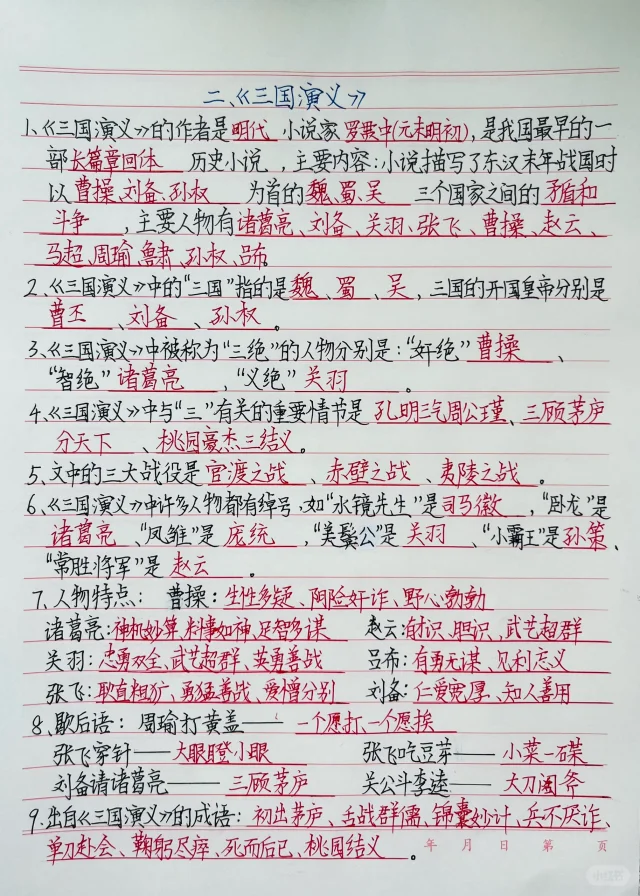 二、《三国演义》
1、《三国演义》的作者是明代 小说家 罗贯中(元末明初), 是我国最早的一
部长篇章回体 历史小说 ,主要内容:小说描写了东汉末年战国时
以 曹操、刘备、孙权 为首的魏、蜀、吴 三个国家之间的 矛盾和
斗争 ,主要人物有诸葛亮、刘备、关羽、张飞、曹操、赵云、
马超、周瑜、鲁肃、孙权、吕布
2、《三国演义》中的“三国”指的是魏、蜀、吴,三国的开国皇帝分别是
曹丕、刘备、孙权。
3、《三国演义》中被称为“三绝”的人物分别是:“奸绝”曹操、
“智绝”诸葛亮,“义绝”关羽。
4、《三国演义》中与“三”有关的重要情节是 孔明三气周公瑾、三顾茅庐
分天下、桃园豪杰三结义。
5、文中的三大战役是官渡之战、赤壁之战、夷陵之战。
6、《三国演义》中许多人物都有绰号,如“水镜先生”是司马徽,“卧龙”是
诸葛亮、“凤雏”是 庞统,“美鬓公”是 关羽、“小霸王”是孙策、
“常胜将军”是 赵云。
7、人物特点: 曹操:生性多疑、阴险奸诈、野心勃勃
诸葛亮:神机妙算、料事如神、足智多谋 赵云:有识、胆识、武艺超群
关羽:忠勇双全、武艺超群、英勇善战 吕布:有勇无谋、见利忘义
张飞:耿直粗犷、勇猛善战、爱憎分别 刘备:仁爱宽厚、知人善用
8、歇后语: 周瑜打黄盖—— 一个愿打、一个愿挨
张飞穿针——大眼瞪小眼 张飞吃豆芽——小菜一碟
刘备请诸葛亮——三顾茅庐 关公斗李逵——大刀阔斧
9、出自《三国演义》的成语: 初出茅庐、舌战群儒、锦囊妙计、兵不厌诈、
单刀赴会、鞠躬尽瘁、死而后已、桃园结义。
年 月 日 第 页